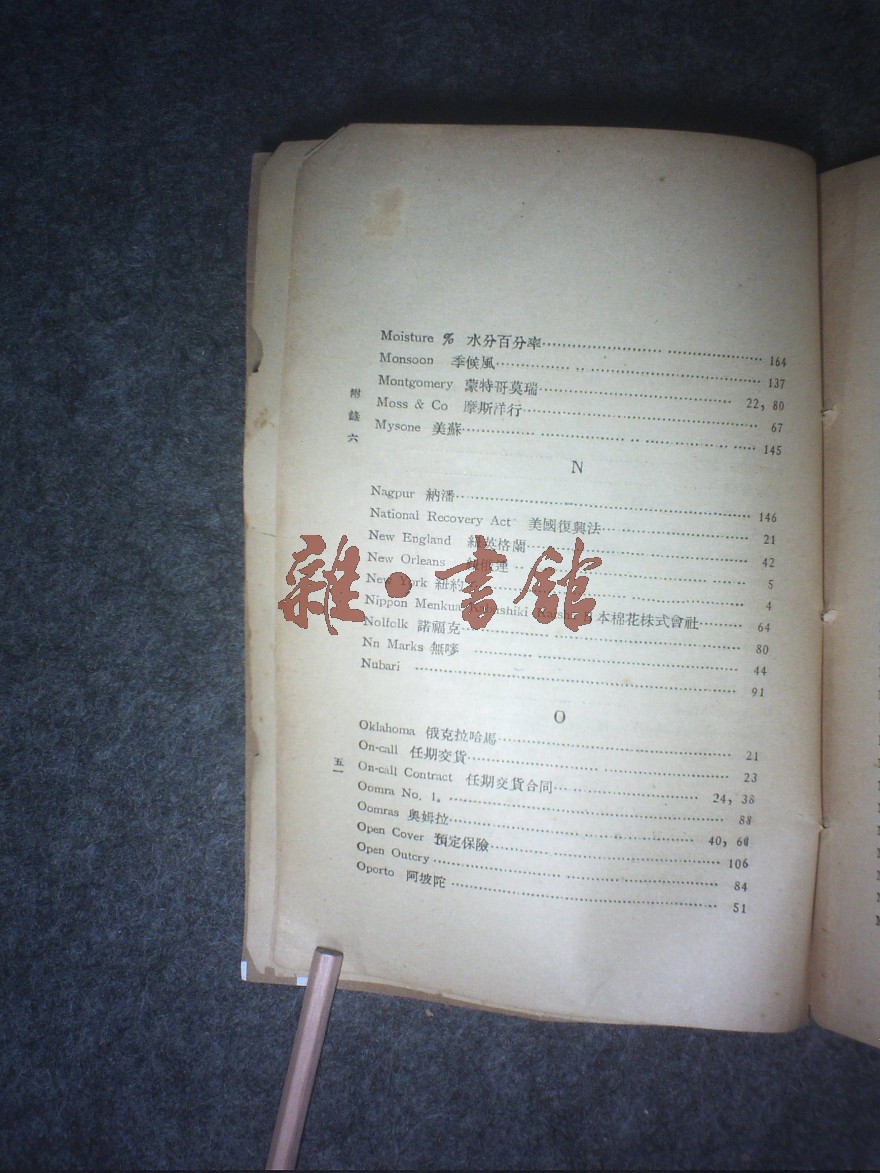 Moisture % 水分百分率 164
Monsoon 季候風 137
Montgomery 蒙特哥莫瑞 22, 80
Moss & Co 摩斯洋行 67
Mysone 美蘇 145
附錄六
N
Nagpur 納潘 146
National Recovery Act 美國復興法 21
New England 紐英格蘭 42
New Orleans 5
New York 紐約 4
Nippon Menkua 日本棉花株式會社 64
Nolfolk 諾福克 80
Nn Marks 無嘜 44
Nubari 91
O
Oklahoma 俄克拉哈馬 21
On-call 任期交貨 23
On-call Contract 任期交貨合同 24, 38
五一
Oomra No. 1. 88
Oomras 奧姆拉 40, 60
Open Cover 預定保險 106
Open Outcry 84
Oporto 阿坡陀 51
雜·書館